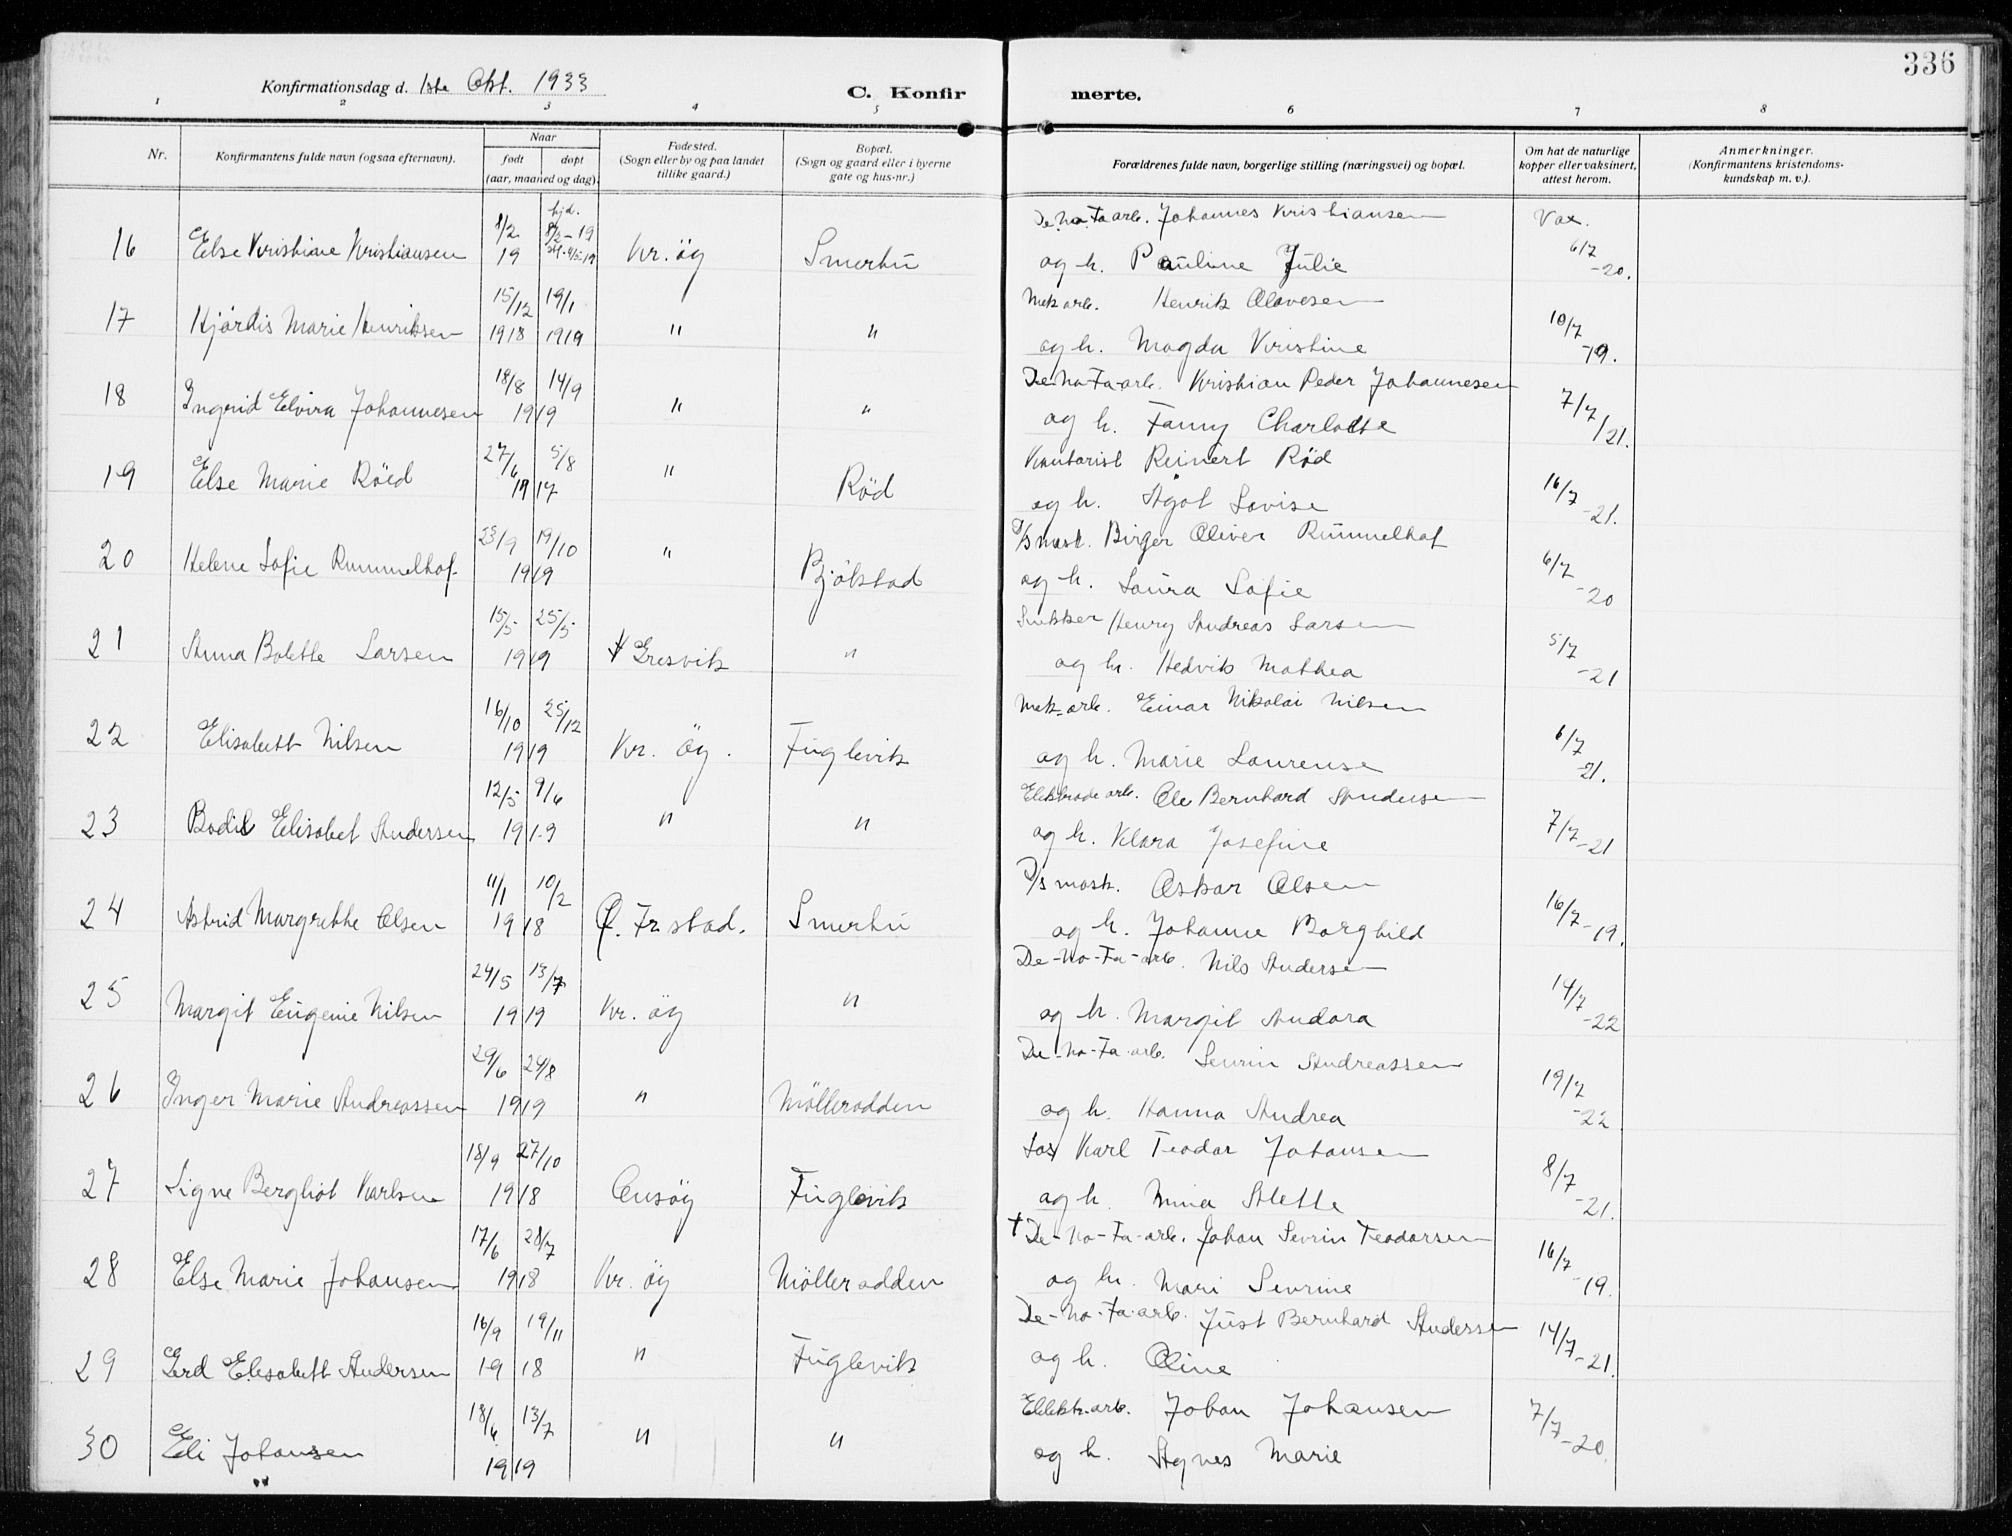 336
Konfirmationsdag d. 1ste Okt. 1933
C. Konfirmerte.
1 2 3 4 5 6 7 8
Nr.
Konfirmantens fulde navn (ogsaa efternavn).
Naar
født døpt
(aar, maaned og dag).
Fødested.
(Sogn eller by og paa landet
tillike gaard.)
Bopæl.
(Sogn og gaard eller i byerne
gate og hus-nr.)
Forældrenes fulde navn, borgerlige stilling (næringsvei) og bopæl.
Om hat de naturlige
kopper eller vaksinert,
attest herom.
Anmerkninger.
(Konfirmantens kristendoms-
kundskap m. v.).
16 Else Kristiane Kristiansen 8/2 19 hjd. 8/2-19 Kr.øy Smertu De-No-Fa arb. Johannes Kristiansen Vax.
og h. Pauline Julie 6/7 -20.
17 Hjørdis Marie Henriksen 15/12 1918 19/1 1919 " " Mek arb. Henrik Olavesen
og h. Magda Kristine 10/7 -19.
18 Ingrid Elvira Johannesen 18/8 14/9 1919 " " De-No-Fa-arb. Kristian Peder Johannesen
og h. Fanny Charlotte 7/7 /21.
19 Else Marie Röed 27/6 5/8 1917 " Röd Kontorist Reinert Rød
og h. Ågot Lovise 16/7 -21.
20 Helene Sofie Rummelhof. 23/9 19/10 1919 " Bjölstad D/S mask. Birger Oliver Rummelhof
og h. Laura Sofie 6/7 -20
21 Anna Bolette Larsen 15/5 25/5 1919 Gresvik " Snekker Henry Andreas Larsen
og h. Hedvik Mathea 5/7 -21
22 Elisabett Nilsen 16/10 25/12 1919 Kr. öy. Fuglevik Mek-arb. Einar Nikolai Nilsen
og h. Marie Laurense 6/7 -21.
23 Bodil Elisabet Andersen 12/5 9/6 191-9 " " Elektrode arb. Ole Bernhard Andersen
og h. Klara Josefine 7/7-21
24 Astrid Margrethe Olsen 11/1 10/2 1918 Ø. Fr.stad. Smertu D/S mask. Oskar Olsen
og h. Johanne Borghild 16/7 -19.
25 Margit Eugenie Nilsen 24/5 13/7 1919 Kr. öy " De-No-Fa-arb. Nils Andersen
og h. Margit Andora 14/7 -22
26 Inger Marie Andreassen 29/6 24/8 1919 " Mölleodden De-No-Fa-arb. Sevrin Andreassen
og h. Hanna Andrea 19/7 -22
27 Signe Bergliot Karlsen 18/9 27/10 1918 Onsöy Fuglevik Los Karl Teodor Johansen
og h. Mina Alette 8/7 -21.
28 Else Marie Johansen 17/6 28/7 1918 Kr. öy Mölleodden † De-No-Fa-arb. Johan Sevrin Teodorsen
og h. Mari Sevrine 16/7 -19.
29 Gerd Elisabett Andersen 16/9 19/11 1918 " Fuglevik De-No-Fa-arb. Just Bernhard Andersen
og h. Oline 14/7-21.
30 Eli Johansen 18/6 13/7 1919 " " Elektr.arb. Johan Johansen
og h. Agnes Marie 7/7-20